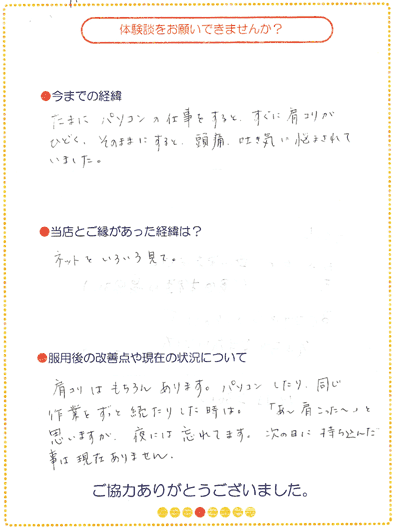 体験談をお願いできませんか？
●今までの経緯
たまに パソコンの仕事をすると、すぐに肩コリが
ひどく、そのままにすると、頭痛、吐き気に悩まされて
いました。
●当店とご縁があった経緯は？
ネットをいろいろ見て。
●服用後の改善点や現在の状況について
肩コリはもちろんあります。パソコンしたり、同じ
作業をずと続たりした時は。「あ〜肩こった〜」と
思いますが、夜には忘れてます。次の日に持ち込んだ
事は現在ありません。
ご協力ありがとうございました。